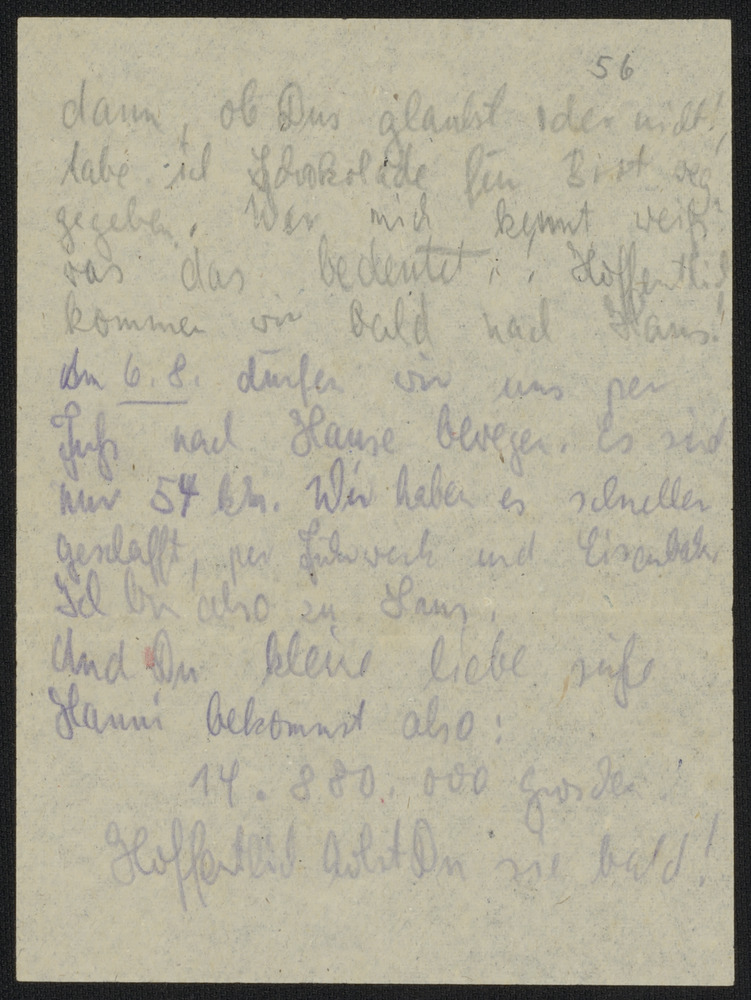 56
dann, ob Dus glaubst oder nicht!,
habe ich Schokolade für Brot weg
gegeben. Wer mich kennt weiß
was das bedeutet!! Hoffentlich
kommen wir bald nach Haus!
Am 6. 8. dürfen wir uns per
Fuß nach Hause bewegen. Es sind
nur 54 km. Wir haben es schneller
geschafft, per Fuhrwerk und Eisenbahn
Ich bin also zu Haus.
Und Du kleine liebe süße
Hanni bekommst also:
14.880.000
Hoffentlich holst Du sie bald!